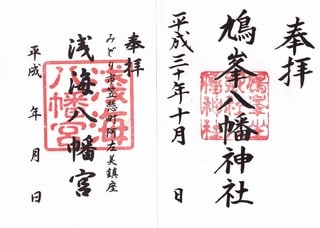 奉拝
鳩峯八幡神社
平成三十年十月 日
奉拝
みどり市笠懸町阿左美鎮座
浅海八幡宮
平成 年 月 日
浅海
八幡宮